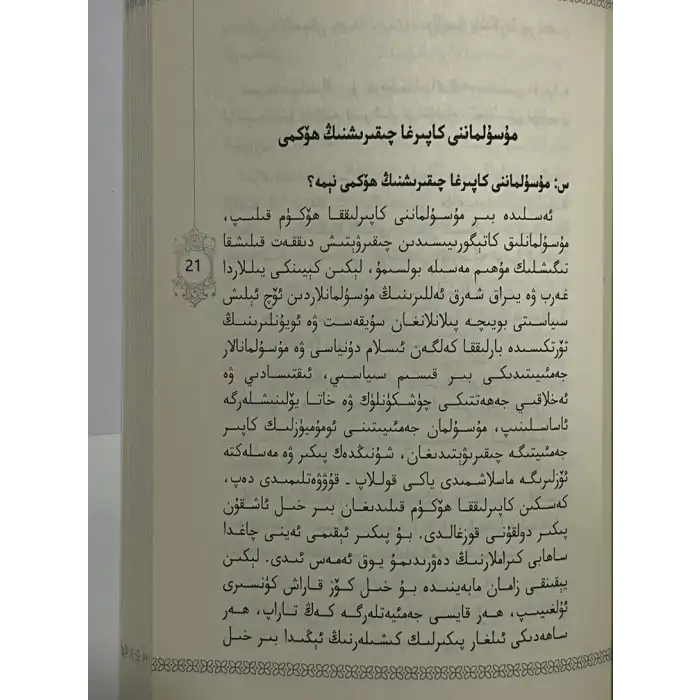 مۇسۇلماننى كاپىرغا چىقىرىشنىڭ ھۆكمى
س: مۇسۇلماننى كاپىرغا چىقىرىشنىڭ ھۆكمى نېمە؟
ئەسلىدە بىر مۇسۇلماننى كاپىرلىققا ھۆكۈم قىلىپ،
مۇسۇلمانلىق كاتېگورىيىسىدىن چىقىرۋېتىش دىققەت قىلىشقا
تېگىشلىك مۇھىم مەسىلە بولسىمۇ، لېكىن كېيىنكى يىللاردا
21
غەرب ۋە يىراق شەرق ئەللىرىنىڭ مۇسۇلمانلاردىن ئۆچ ئېلىش
سىياسىتى بويىچە پىلانلانغان سۇيقەست ۋە ئويۇنلىرىنىڭ
تۈرتكىسىدە بارلىققا كەلگەن ئىسلام دۇنياسى ۋە مۇسۇلمانلار
جەمئىيىتىدىكى بىر قىسىم سىياسىي، ئىقتىسادىي ۋە
ئەخلاقىي جەھەتتىكى چۈشكۈنلۈك ۋە خاتا يۆلىنىشلەرگە
ئاساسلىنىپ، مۇسۇلمان جەمئىيىتىنى ئومۇميۈزلىك كاپىر
جەمئىيىتىگە چىقىرىۋېتىدىغان، شۇنىڭدەك پىكىر ۋە مەسلەكتە
ئۆزلىرىگە ماسلاشمىدى ياكى قوللاپ - قۇۋۋەتلىمىدى دەپ،
كەسكىن كاپىرلىققا ھۆكۈم قىلىدىغان بىر خىل ئاشقۇن
پىكىر دولقۇنى قوزغالدى. بۇ پىكىر ئېقىمى ئەينى چاغدا
ساھابى كىراملارنىڭ دەۋرىدىمۇ يوق ئەمەس ئىدى. لېكىن
يېقىنقى زامان مابەينىدە بۇ خىل كۆز قاراش كۈنسېرى
ئۇلغىيىپ، ھەر قايسى جەمئىيەتلەرگە كەڭ تاراپ، ھەر
ساھەدىكى ئىلغار پىكىرلىك كىشىلەرنىڭ ئېڭىدا بىر خىل